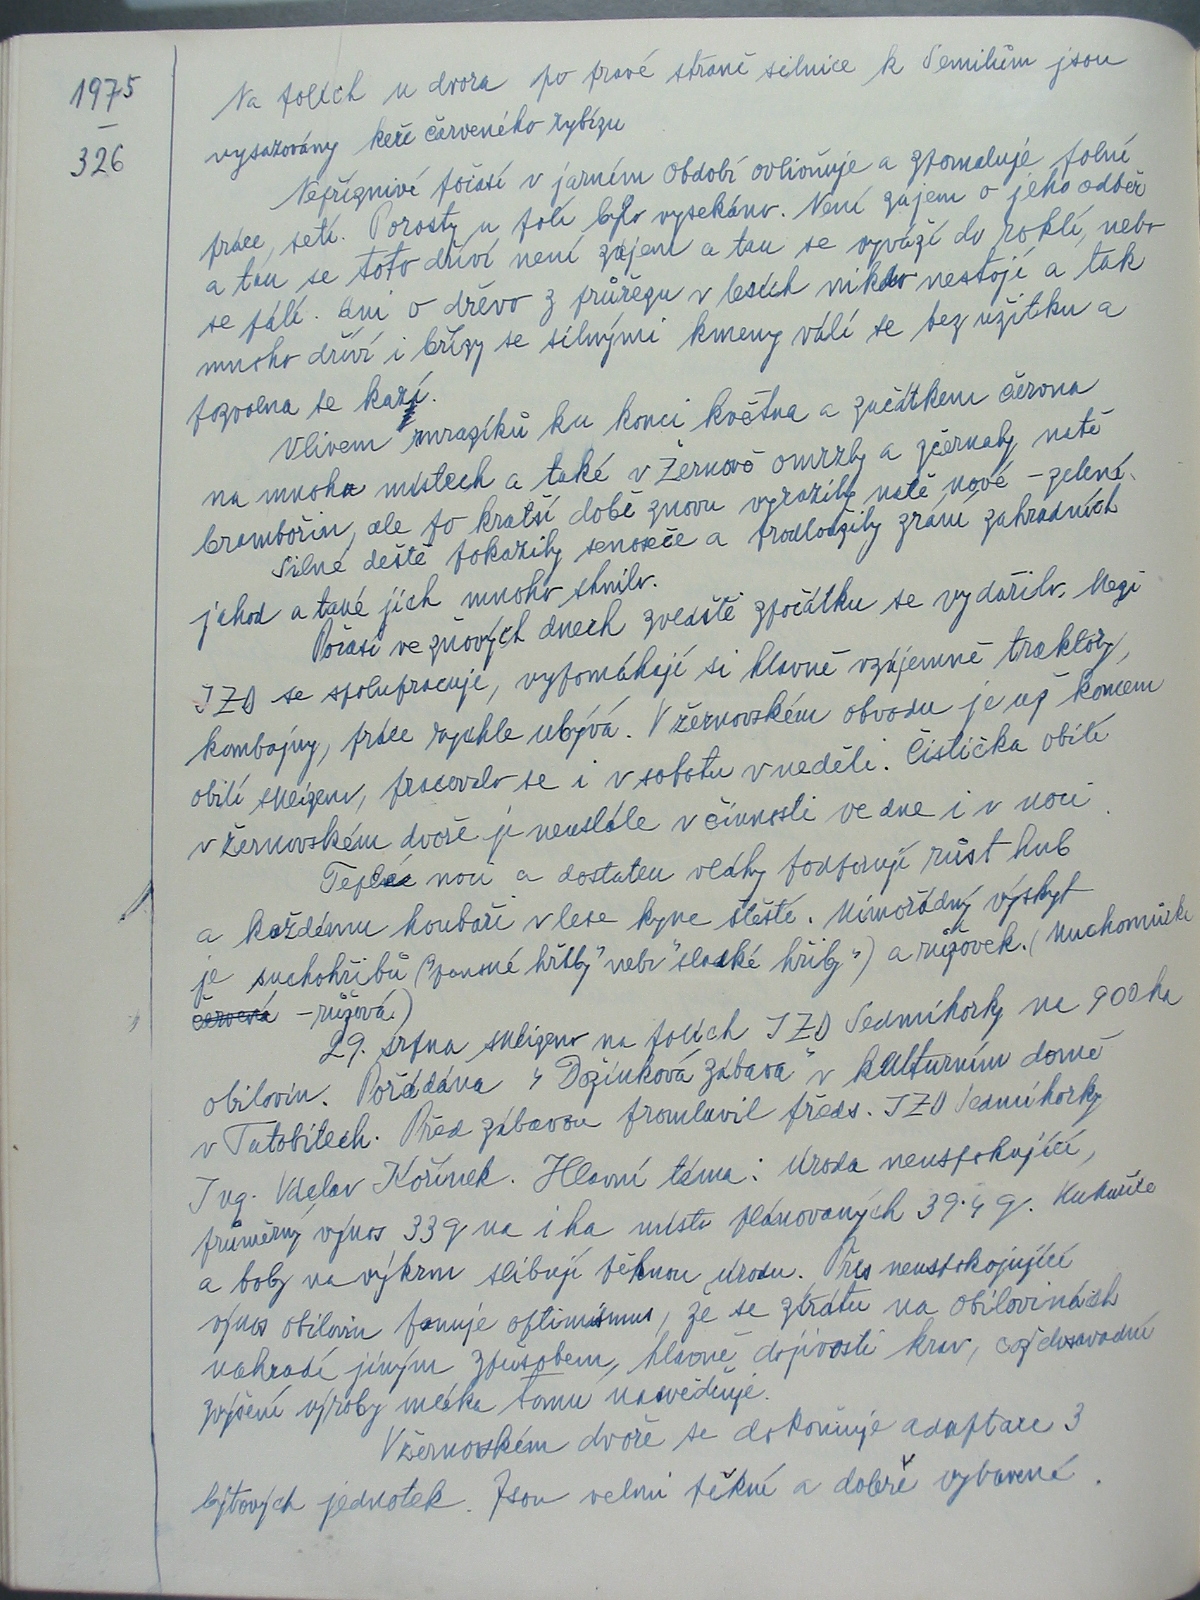 1975
326
Na polích u dvora po pravé straně silnice k Semilům jsou
vysazovány keře červeného rybízu
Nepříznivé počasí v jarním období ovlivňuje a zpomaluje polní
práce, setí. Porosty u polí bylo vysekáno. Není zájem o jeho odběr
a tak se toto dříví není zájem a tak se vyváží do roklí, nebo
se pálí. Ani o dřevo z průřezu v lesích nikdo nestojí a tak
mnoho dříví i břízy se silnými kmeny válí se bez užitku a
pozvolna se kazí.
Vlivem mrazíků ku konci května a začátkem června
na mnoha místech a také v Žernově omrzly a zčernaly natě
bramborin, ale po kratší době znovu vyrazily natě nové – zelené.
Silné deště pokazily senoseče a prodloužily zrání zahradních
jahod a také jich mnoho shnilo.
Počasí ve žňových dnech zvláště zpočátku se vydařilo. Mezi
JZD se spolupracuje, vypomáhají si hlavně vzájemně traktory,
kombajny, práce rychle ubývá. V žernovském obvodu je už koncem
obilí sklizeno, pracovalo se i v sobotu v neděli. Čistička obilí
v žernovském dvoře je neustále v činnosti ve dne i v noci.
Teplé noci a dostatek vláhy podporují růst hub
a každému houbaři v lese kyne štěstí. Mimořádný výskyt
je suchohřibů ("panské hřiby" nebo "sladké hřiby") a růžovek. (Muchomůrka
červená – růžová)
29. srpna sklizeno na polích JZD Sedmihorky na 900 ha
obilovin. Pořádána "Dožínková zábava" v kulturním domě
v Tatobitech. Před zábavou promluvil předs. JZD Sedmihorky
Ing. Václav Kořínek. Hlavní téma: Úroda neuspokojující,
průměrný výnos 33 q na 1 ha místo plánovaných 39.4 q. Kukuřice
a boby na výkrm slibují pěknou úrodu. Přes neuspokojující
výnos obilovin panuje optimismus, že se ztrátu na obilovinách
nahradí jiným způsobem, hlavně dojivostí krav, což dosavadní
zvýšení výroby mléka tomu nasvědčuje.
V žernovském dvoře se dokončuje adaptace 3
bytových jednotek. Jsou velmi pěkné a dobře vybavené.